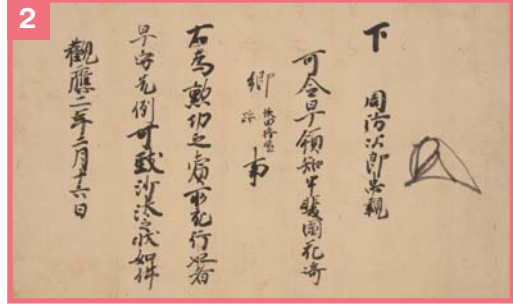 2
下 周防次郎忠親
可令早領知甲斐國花崎
郷 跡 事
右為勲功之賞所宛行也者
早守先例可致沙汰之状如件
觀應二年二月十六日